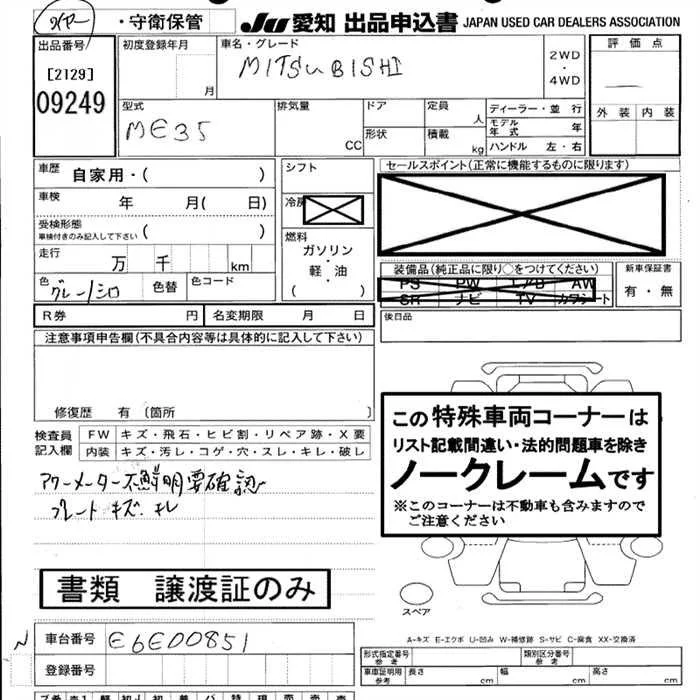 ・守衛保管 JU 愛知 出品申込書 JAPAN USED CAR DEALERS ASSOCIATION
出品番号
[2129]
09249
初度登録年月
月
車名・グレード
MITSUBISHI
2WD
・
4WD
評価点
外装 内装
型式
ME35
排気量
CC
ドア
形状
定員
人
積載
kg
ディーラー・並行
モデル年式 年
ハンドル 左・右
車歴 自家用・( )
車検 年 月( 日)
受検形態
車検付きのみ記入して下さい ( )
走行 万 千 km
色 グレー/シロ 色替 色コード
シフト
冷房
燃料
ガソリン
・
軽・油
( )
セールスポイント(正常に機能するものに限ります)
装備品(純正品に限り○をつけてください)
PS PW エアB AW
SR ナビ TV カワシート
新車保証書
有・無
R券 円 名変期限 月 日
後日品
注意事項申告欄(不具合内容等は具体的に記入して下さい)
修復歴 有〔箇所 〕
検査員記入欄
FW キズ・飛石・ヒビ割・リペア跡・X要
内装 キズ・汚レ・コゲ・穴・スレ・キレ・破レ
アワーメーター不鮮明要確認
プレート キズ、キレ
この特殊車両コーナーは
リスト記載間違い・法的問題車を除き
ノークレームです
※このコーナーは不動車も含みますので
ご注意ください
書類 譲渡証のみ
スペア
A-キズ E-エクボ U-凹み W-補修跡 S-サビ C-腐食 XX-交換済
車台番号 E6E00851
登録番号
形式指定番号
参考
類別区分番号
参考
車庫証明用
参考
長さ cm 幅 cm 高さ cm